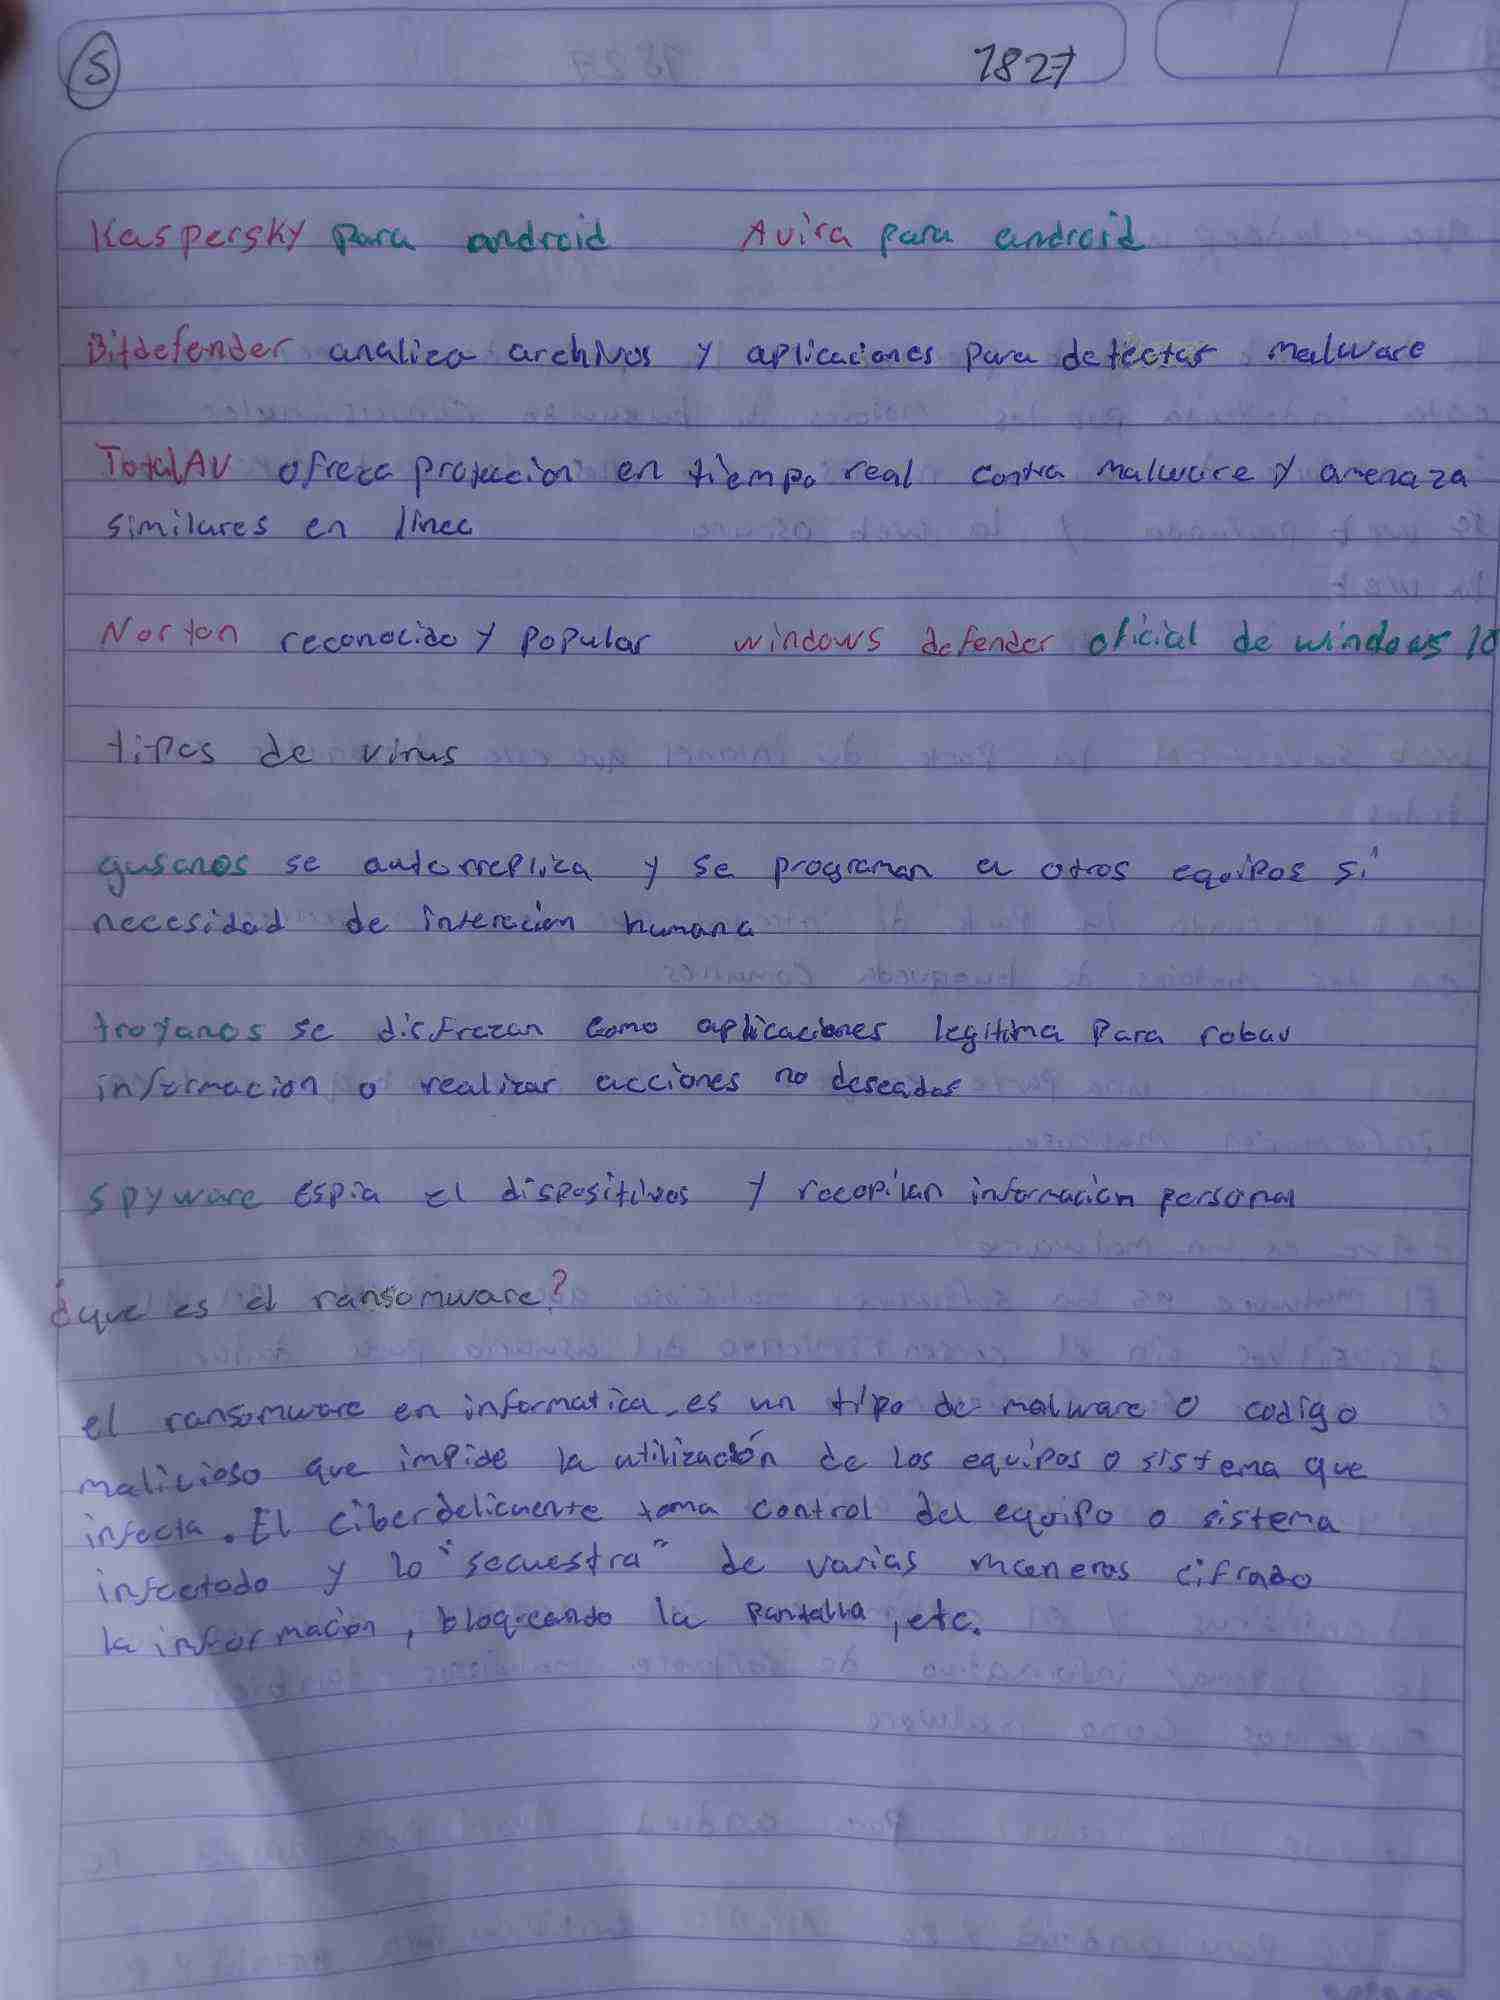 5
1827
Kaspersky para android Avira para android
Bitdefender analiza archivos y aplicaciones para detectar malware
TotalAV ofreza protección en tiempo real contra malware y amenaza
similares en linea
Norton reconocido y popular windows defender oficial de windows 10
tipos de virus
gusanos se autorreplica y se programan a otros equipos si
necesidad de interacion humana
troyanos se disfrazan como aplicaciones legitima para robar
informacion o realizar acciones no deseadas
spyware espia el dispositivos y recopilan informacion personal
¿que es el ransomware?
el ransomware en informatica es un tipo de malware o codigo
malicioso que impide la utilización de los equipos o sistema que
infecta. El ciberdelicuente toma control del equipo o sistema
infectado y lo "secuestra" de varias maneras cifrado
la información, bloqueando la pantalla, etc.